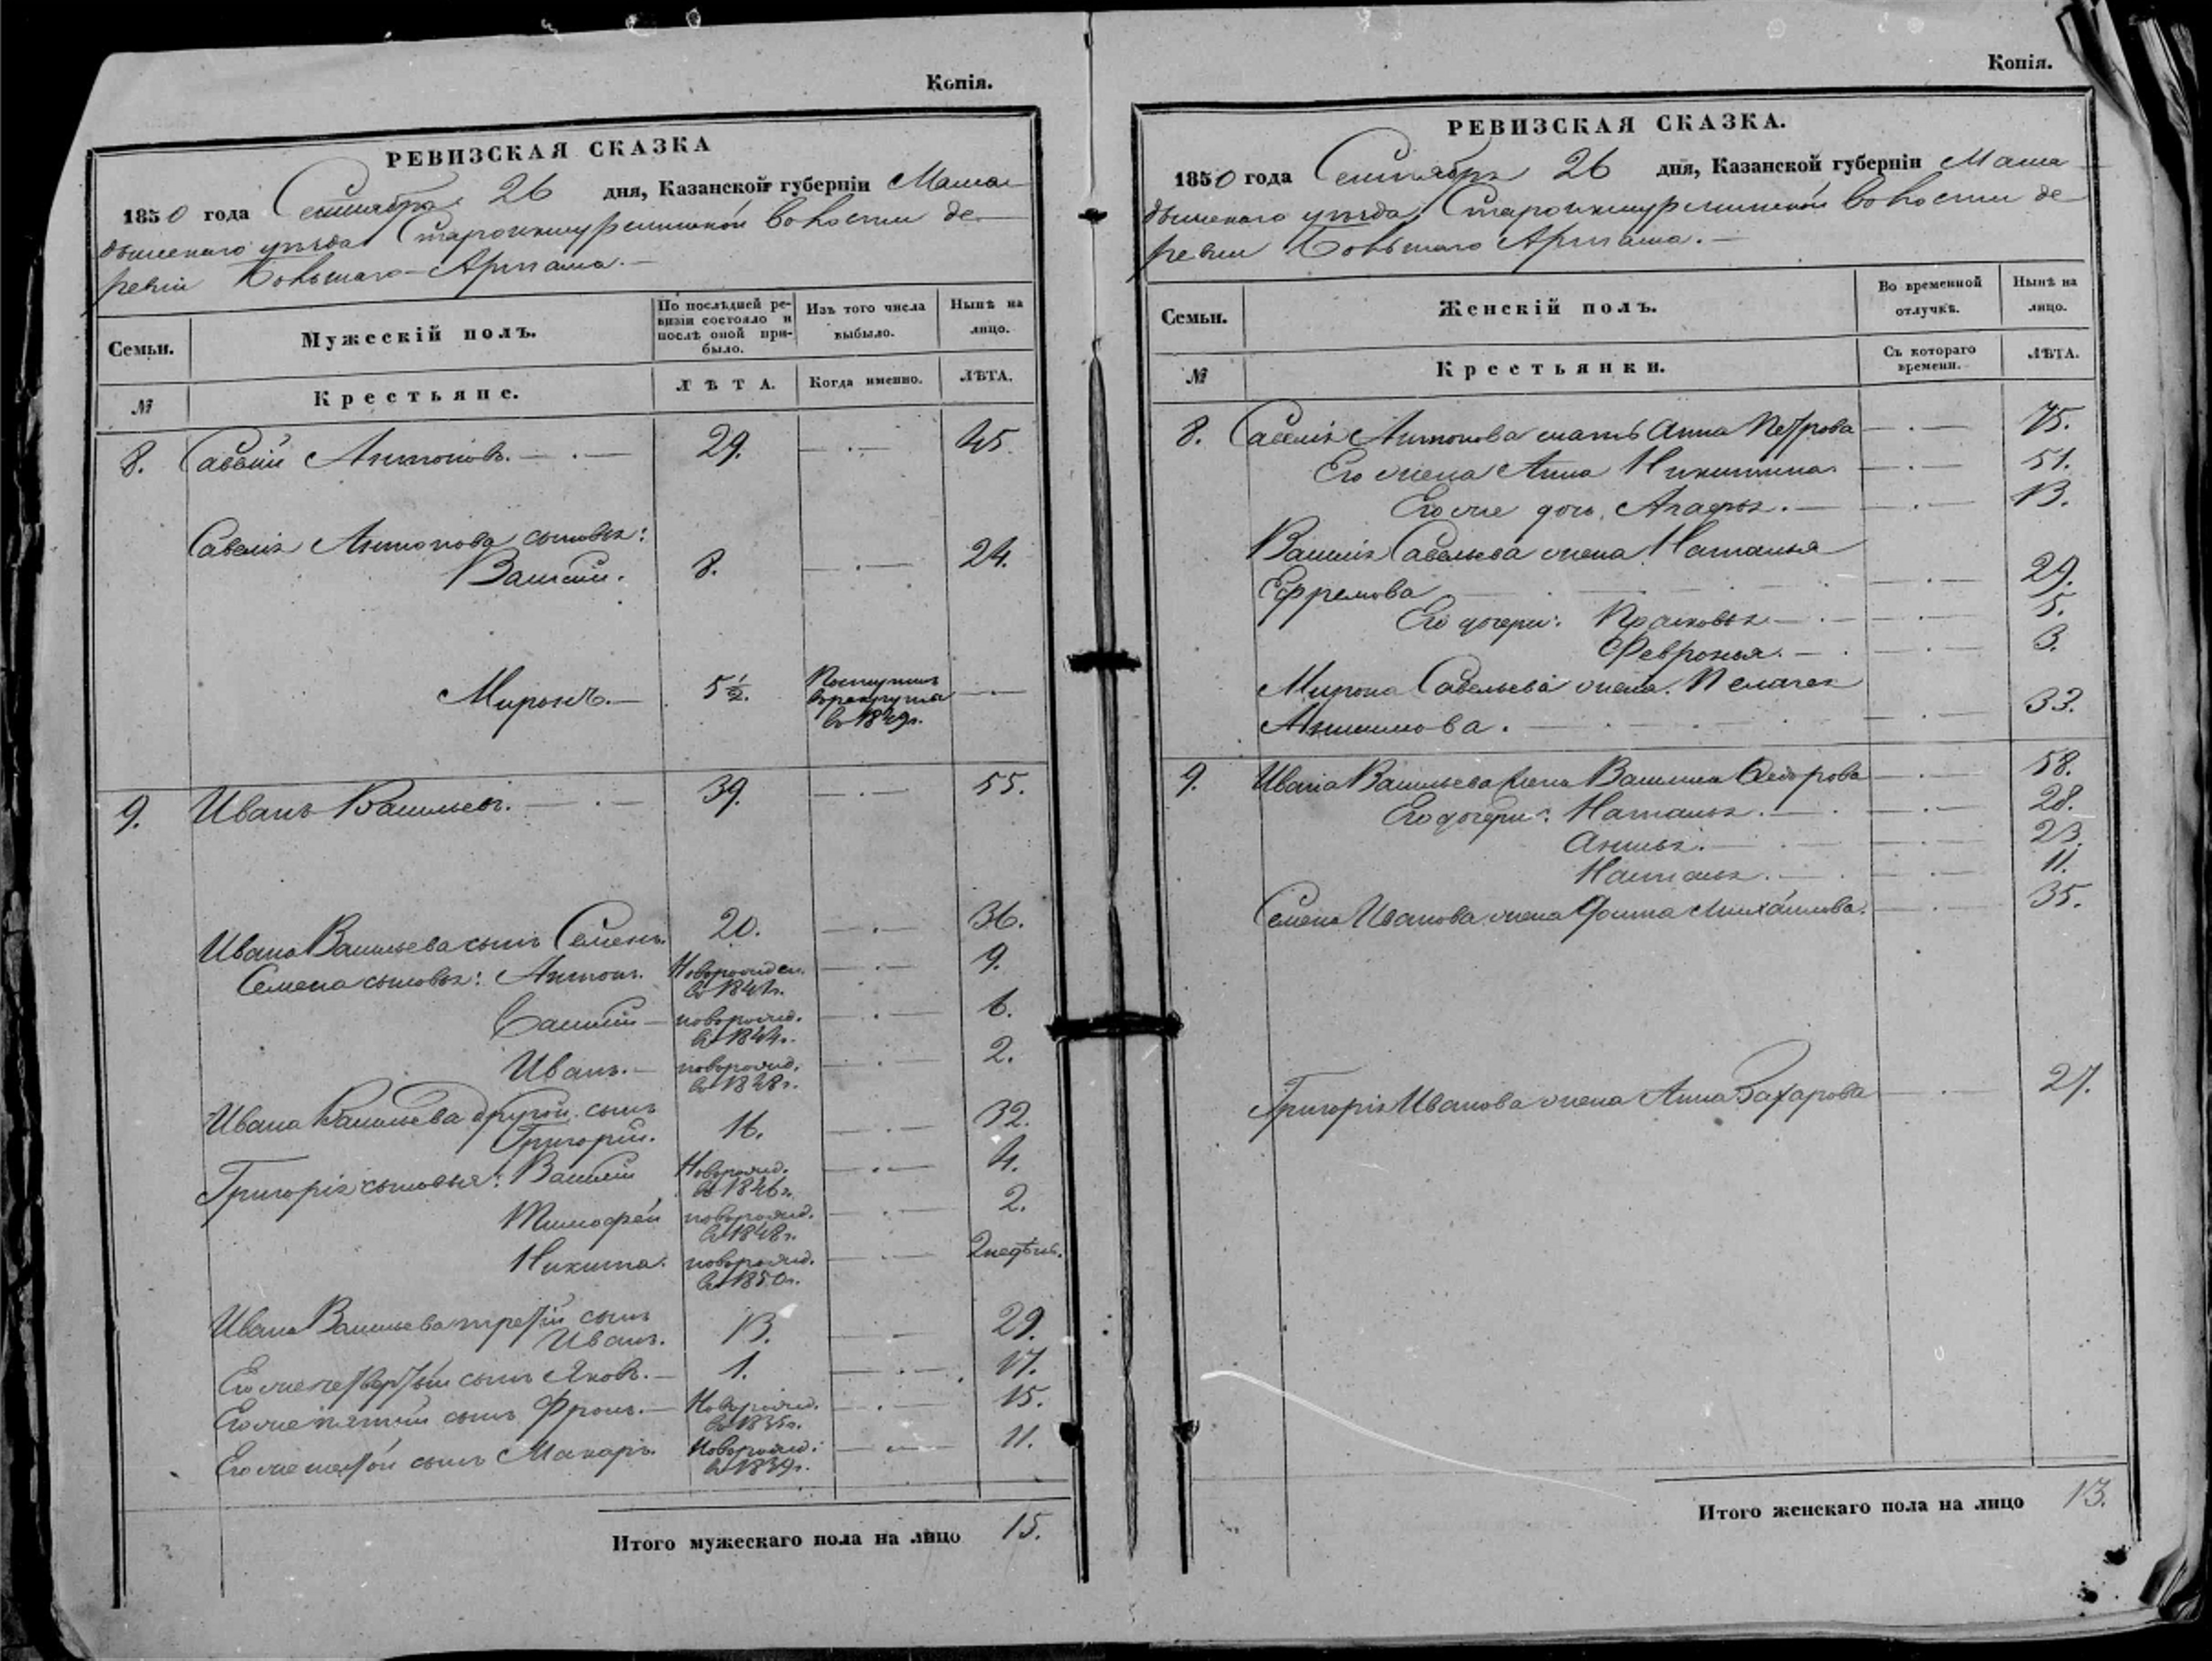 Копія.
РЕВИЗСКАЯ СКАЗКА
1850 года Сентября 26 дня, Казанской губерніи Мама-
дышскаго уѣзда Волости де-
ревни Большаго Арташа.
Семьи. Мужескій полъ. По послѣдней ре-визіи состояло и послѣ оной при-было. Изъ того числа выбыло. Нынѣ на лицо.
№ Крестьяне. ЛѢТА. Когда именно. ЛѢТА.
8. Савелій Антоновъ. 29. 45.
Савелія Антонова сыновья:
Василій. 8. 24.
Миронъ. 5½. Поступилъ в рекруты в 1849 г.
9. Иванъ Васильевъ. 39. 55.
Ивана Васильева сынъ Семенъ. 20. 36.
Семена сыновья: Антонъ. Новорожден. в 1841 г. 9.
Василій новорожд. в 1844 г. 6.
Иванъ. новорожд. в 1848 г. 2.
Ивана Васильева другой сынъ
Григорій. 16. 32.
Григорія сыновья: Василій Новорожд. в 1846 г. 4.
Тимофей новорожд. в 1848 г. 2.
Никита. новорожд. в 1850 г. 2 недѣль.
Ивана Васильева третій сынъ
Иванъ. 13. 29.
Его же четвертый сынъ Яковъ. 1. 17.
Его же пятый сынъ Фролъ. Новорожд. в 1835 г. 15.
Его же шестой сынъ Макаръ. Новорожд. в 1839 г. 11.
Итого мужескаго пола на лицо 15.
Копія.
РЕВИЗСКАЯ СКАЗКА.
1850 года Сентября 26 дня, Казанской губерніи Мама-
дышскаго уѣзда Волости де-
ревни Большаго Арташа.
Семьи. Женскій полъ. Во временной отлучкѣ. Нынѣ на лицо.
№ Крестьянки. Съ котораго времени. ЛѢТА.
8. Савелія Антонова мать Анна Петрова 75.
Его жена Анна Никитина. 51.
Его же дочь Агафья. 13.
Василія Савельева жена Наталья
Ефремова 29.
Его дочери: Прасковья 5.
Февронья. 3.
Мирона Савельева жена Пелагея
Анисимова. 33.
9. Ивана Васильева жена Федорова 58.
Его дочери: Наталья. 28.
23.
Наталья. 11.
Семена Иванова жена Михайлова. 35.
Григорія Иванова жена Анна Захарова 27.
Итого женскаго пола на лицо 13.